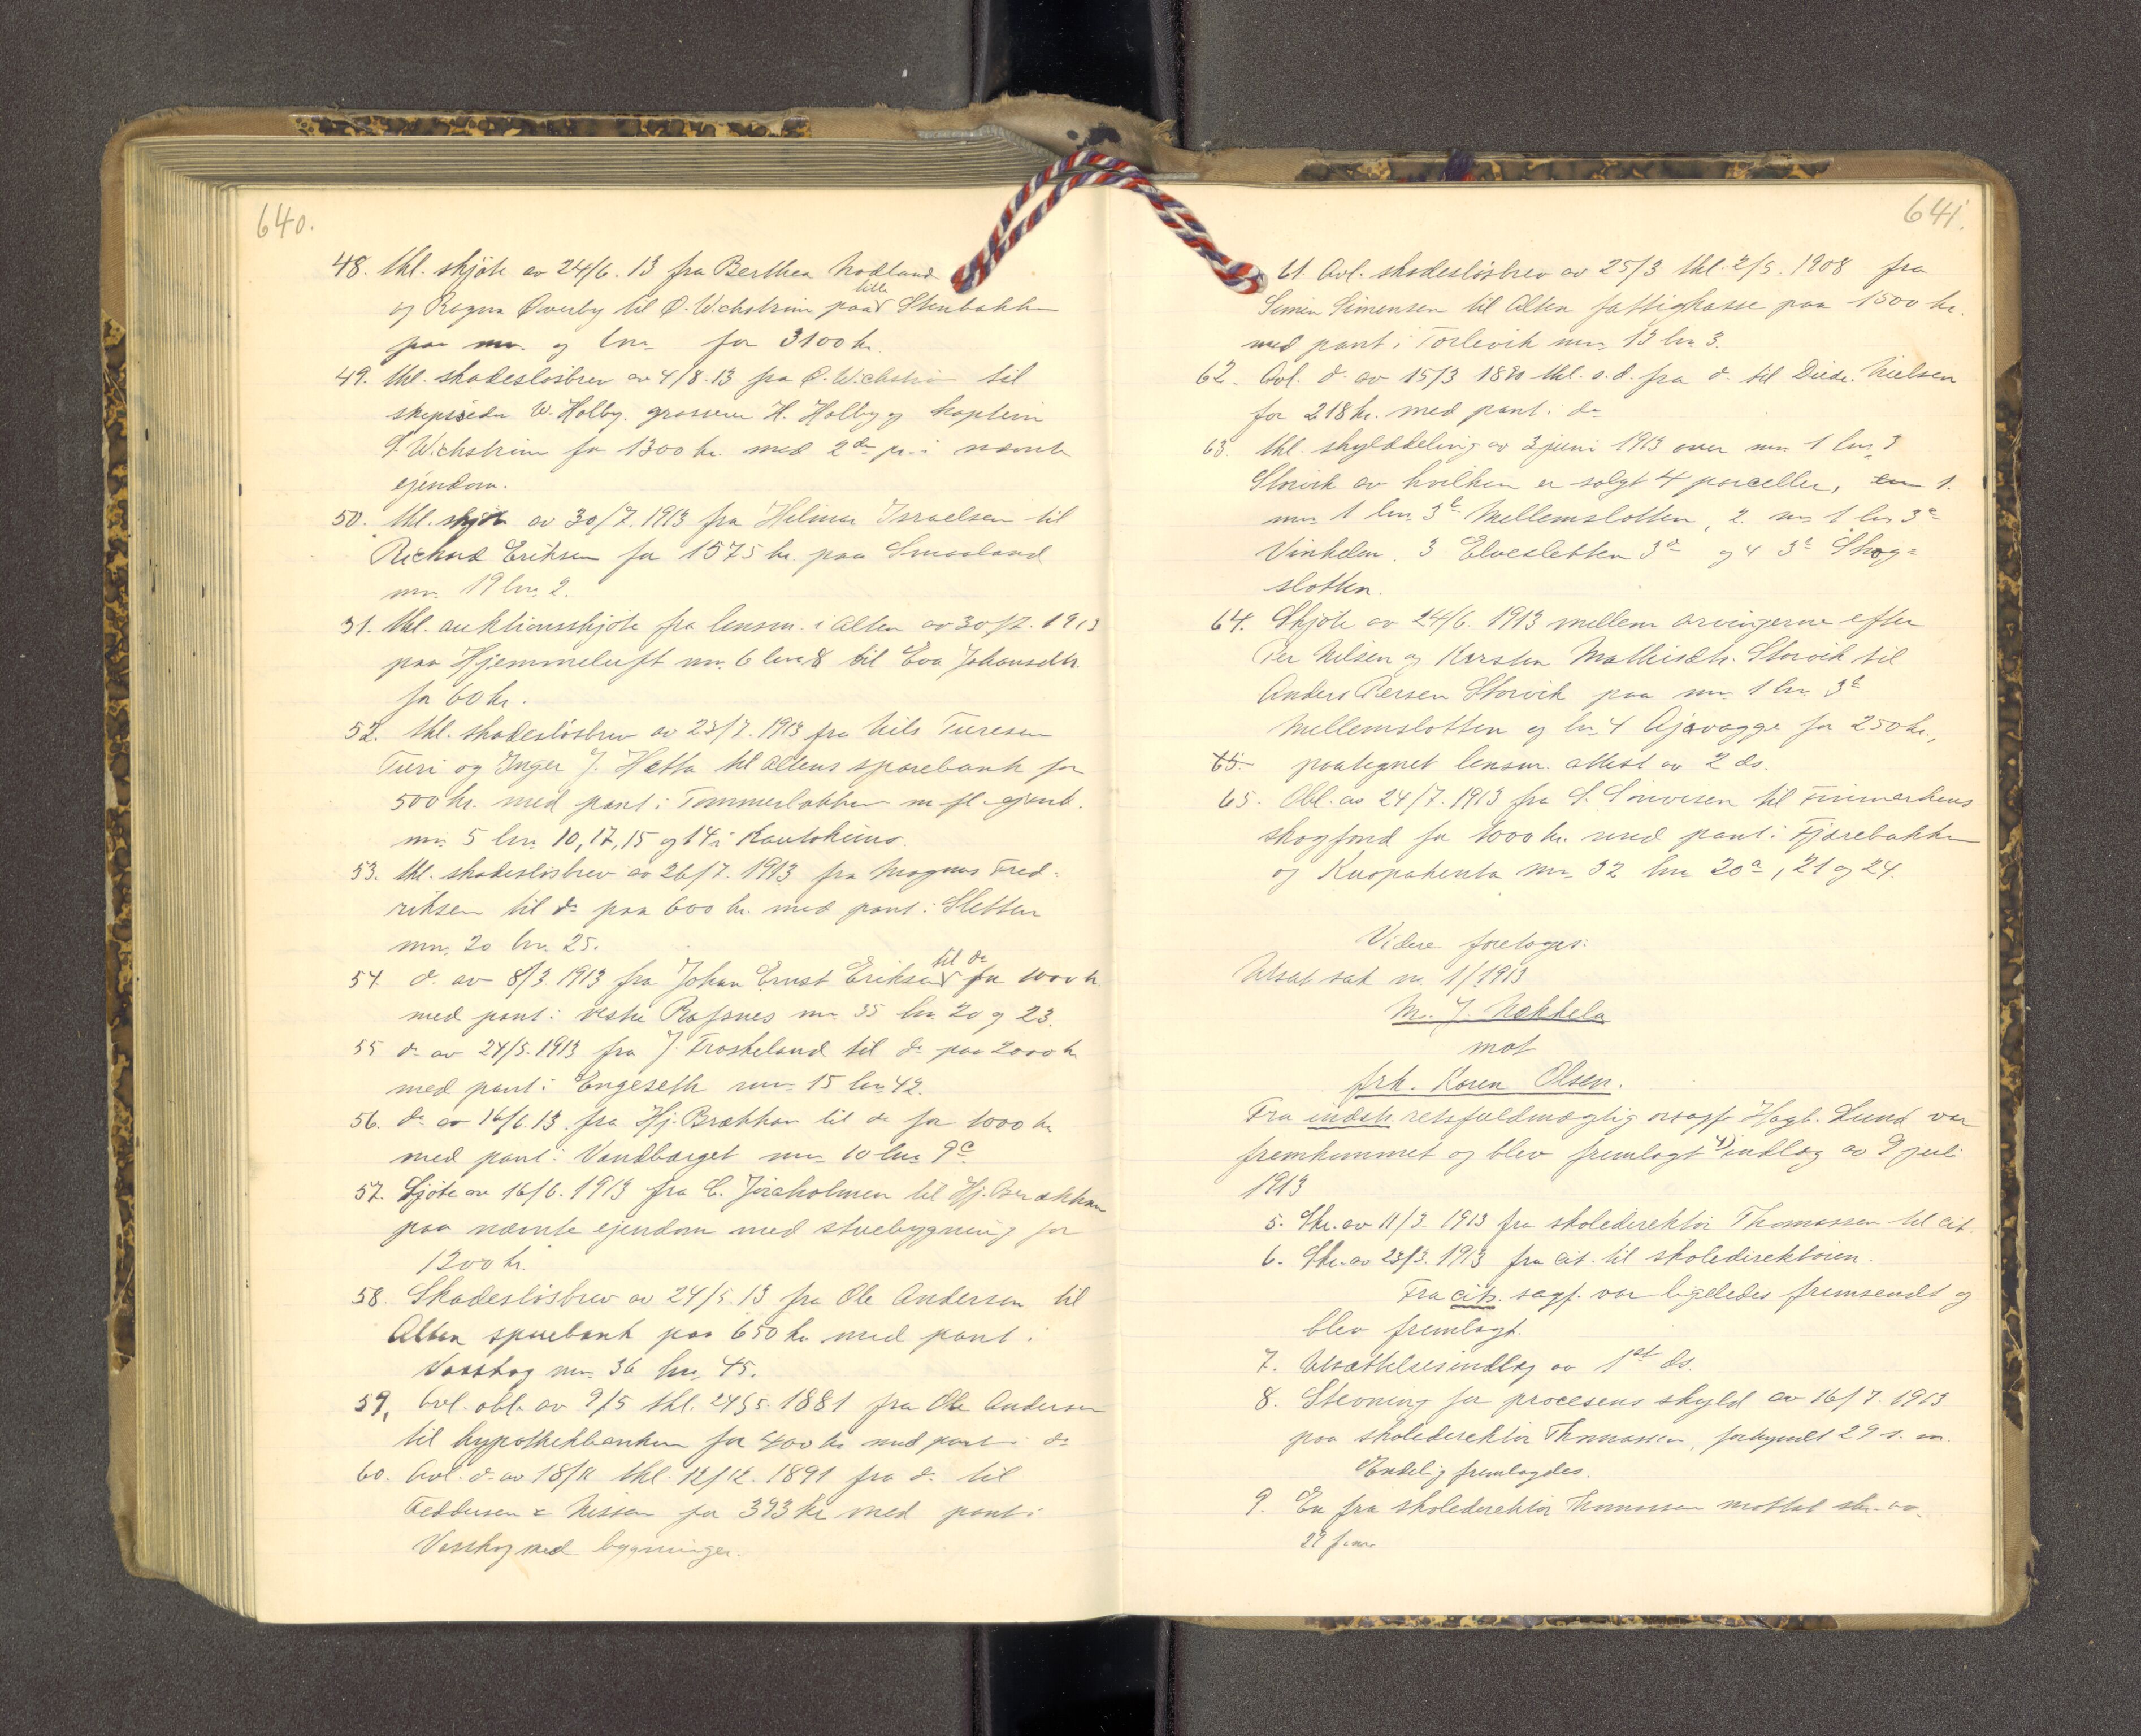 640.
48. thl. skjöte av 24/6. 13 fra Berthea Nodland
og Ragna Øverby til Ø. Wichström paa lille Stenbakken
paa mn. og bn. for 3100 kr.
49. thl. skadeslösbrev av 4/8. 13 fra Ø. Wichström til
skipsreder W. Holby, grosserer H. Holby og kaptein
Wichström for 1300 kr. med 2den pr. i nævnte
ejendom.
50. thl. skjöte av 30/7. 1913 fra Hilmar Israelsen til
Richard Eriksen for 1575 kr. paa Smaaland
mn. 19 bn. 2.
51. thl. auktionsskjöte fra lensm. i Alten av 30/7. 1913
paa Hjemmeluft mn. 6 bn. 8 til Eva Johansdtr.
for 60 kr.
52. thl. skadeslösbrev av 23/7. 1913 fra Nils Turesen
Turi og Inger J. Hætta til Altens sparebank for
500 kr. med pant i Tømmerbakken m. fl. ejend.
mn. 5 bn. 10, 17, 15 og 14 i Kautokeino.
53. thl. skadeslösbrev av 26/7. 1913 fra Magnus Fred-
riksen til do paa 600 kr. med pant i Sletten
mn. 20 bn. 25.
54. do av 8/3. 1913 fra Johan Ernst Eriksen til do for 1000 kr.
med pant i vestre Rafsnes mn. 35 bn. 20 og 23.
55 do av 24/5. 1913 fra J. Froskeland til do paa 2000 kr
med pant i Engeseth mn. 15 bn. 42.
56. do av 16/6. 13. fra Hj. Brækkan til do for 1000 kr
med pant i Vandbærget mn. 10 bn. 9c.
57. Sjöte av 16/6. 1913 fra C. Jöraholmen til Hj. Brækkan
paa nævnte ejendom med stuebygning for
1200 kr.
58. Skadeslösbrev av 24/5. 13 fra Ole Andersen til
Alten sparebank paa 650 kr med pant i
Vasskog mn. 36 bn. 45.
59, Avl. obl. av 9/5 thl. 24/5. 1881 fra Ole Andersen
til hypothekbanken for 400 kr med pant i do
60. Avl. do av 18/11 thl. 12/12. 1891 fra do til
Feddersen & Nissen for 393 kr med pant i
Vasskog med bygninger.
641.
61. Avl. skadeslösbrev av 25/3 thl. 2/5. 1908 fra
Simon Simensen til Alten fattigkasse paa 1500 kr.
med pant i Torlevik mn. 13 bn. 3.
62. Avl. do av 15/3 1890 thl. s.d. fra do til Diedr. Nielsen
for 218 kr. med pant i do
63. thl. skylddeling av 3 juni 1913 over mn. 1 bn. 3
Storvik av hvilken er solgt 4 parceller, 1.
mn. 1 bn. 3b Mellemslotten, 2. mn. 1 bn. 3c
Vinkelen. 3 Elvesletten 3d og 4 3e Skog=
slotten.
64. Skjöte av 24/6. 1913 mellem arvingerne efter
Per Nilsen og Karsten Mathisdtr. Storvik til
Anders Persen Storvik paa mn. 1 bn. 3b
Mellemslotten og bn. 4 Ajavagge for 250 kr.,
65. paategnet lensm. attest av 2 ds.
65. Obl. av 24/7. 1913 fra S. Simesen til Finmarkens
skogfond for 1000 kr. med pant i Fjærebakken
og Kuopakenta mn. 32 bn. 20a, 21 og 24.
Videre foretoges:
Utsat sak nr. 1/1913
M. J. Nakkela
mot
frk. Karen Olsen.
Fra indstv. retsfuldmægtig ovsagf. Hagb. Lund var
fremkommet og blev fremlagt 4) indlæg av 9 juli
1913
5. Skr. av 11/3 1913 fra skoledirektör Thomassen til cit.
6. Skr. av 23/3. 1913 fra cit. til skoledirektören.
Fra cits. sagf. var ligeledes fremsendt og
blev fremlagt.
7. Utsættelsesindlæg av 1st ds.
8. Stevning for procesens skyld av 16/7. 1913
paa skoledirektör Thomassen, forkyndt 29 s. m.
Endelig fremlagdes.
9. En fra skoledirektör Thomassen mottat skr. av
29 f. m.